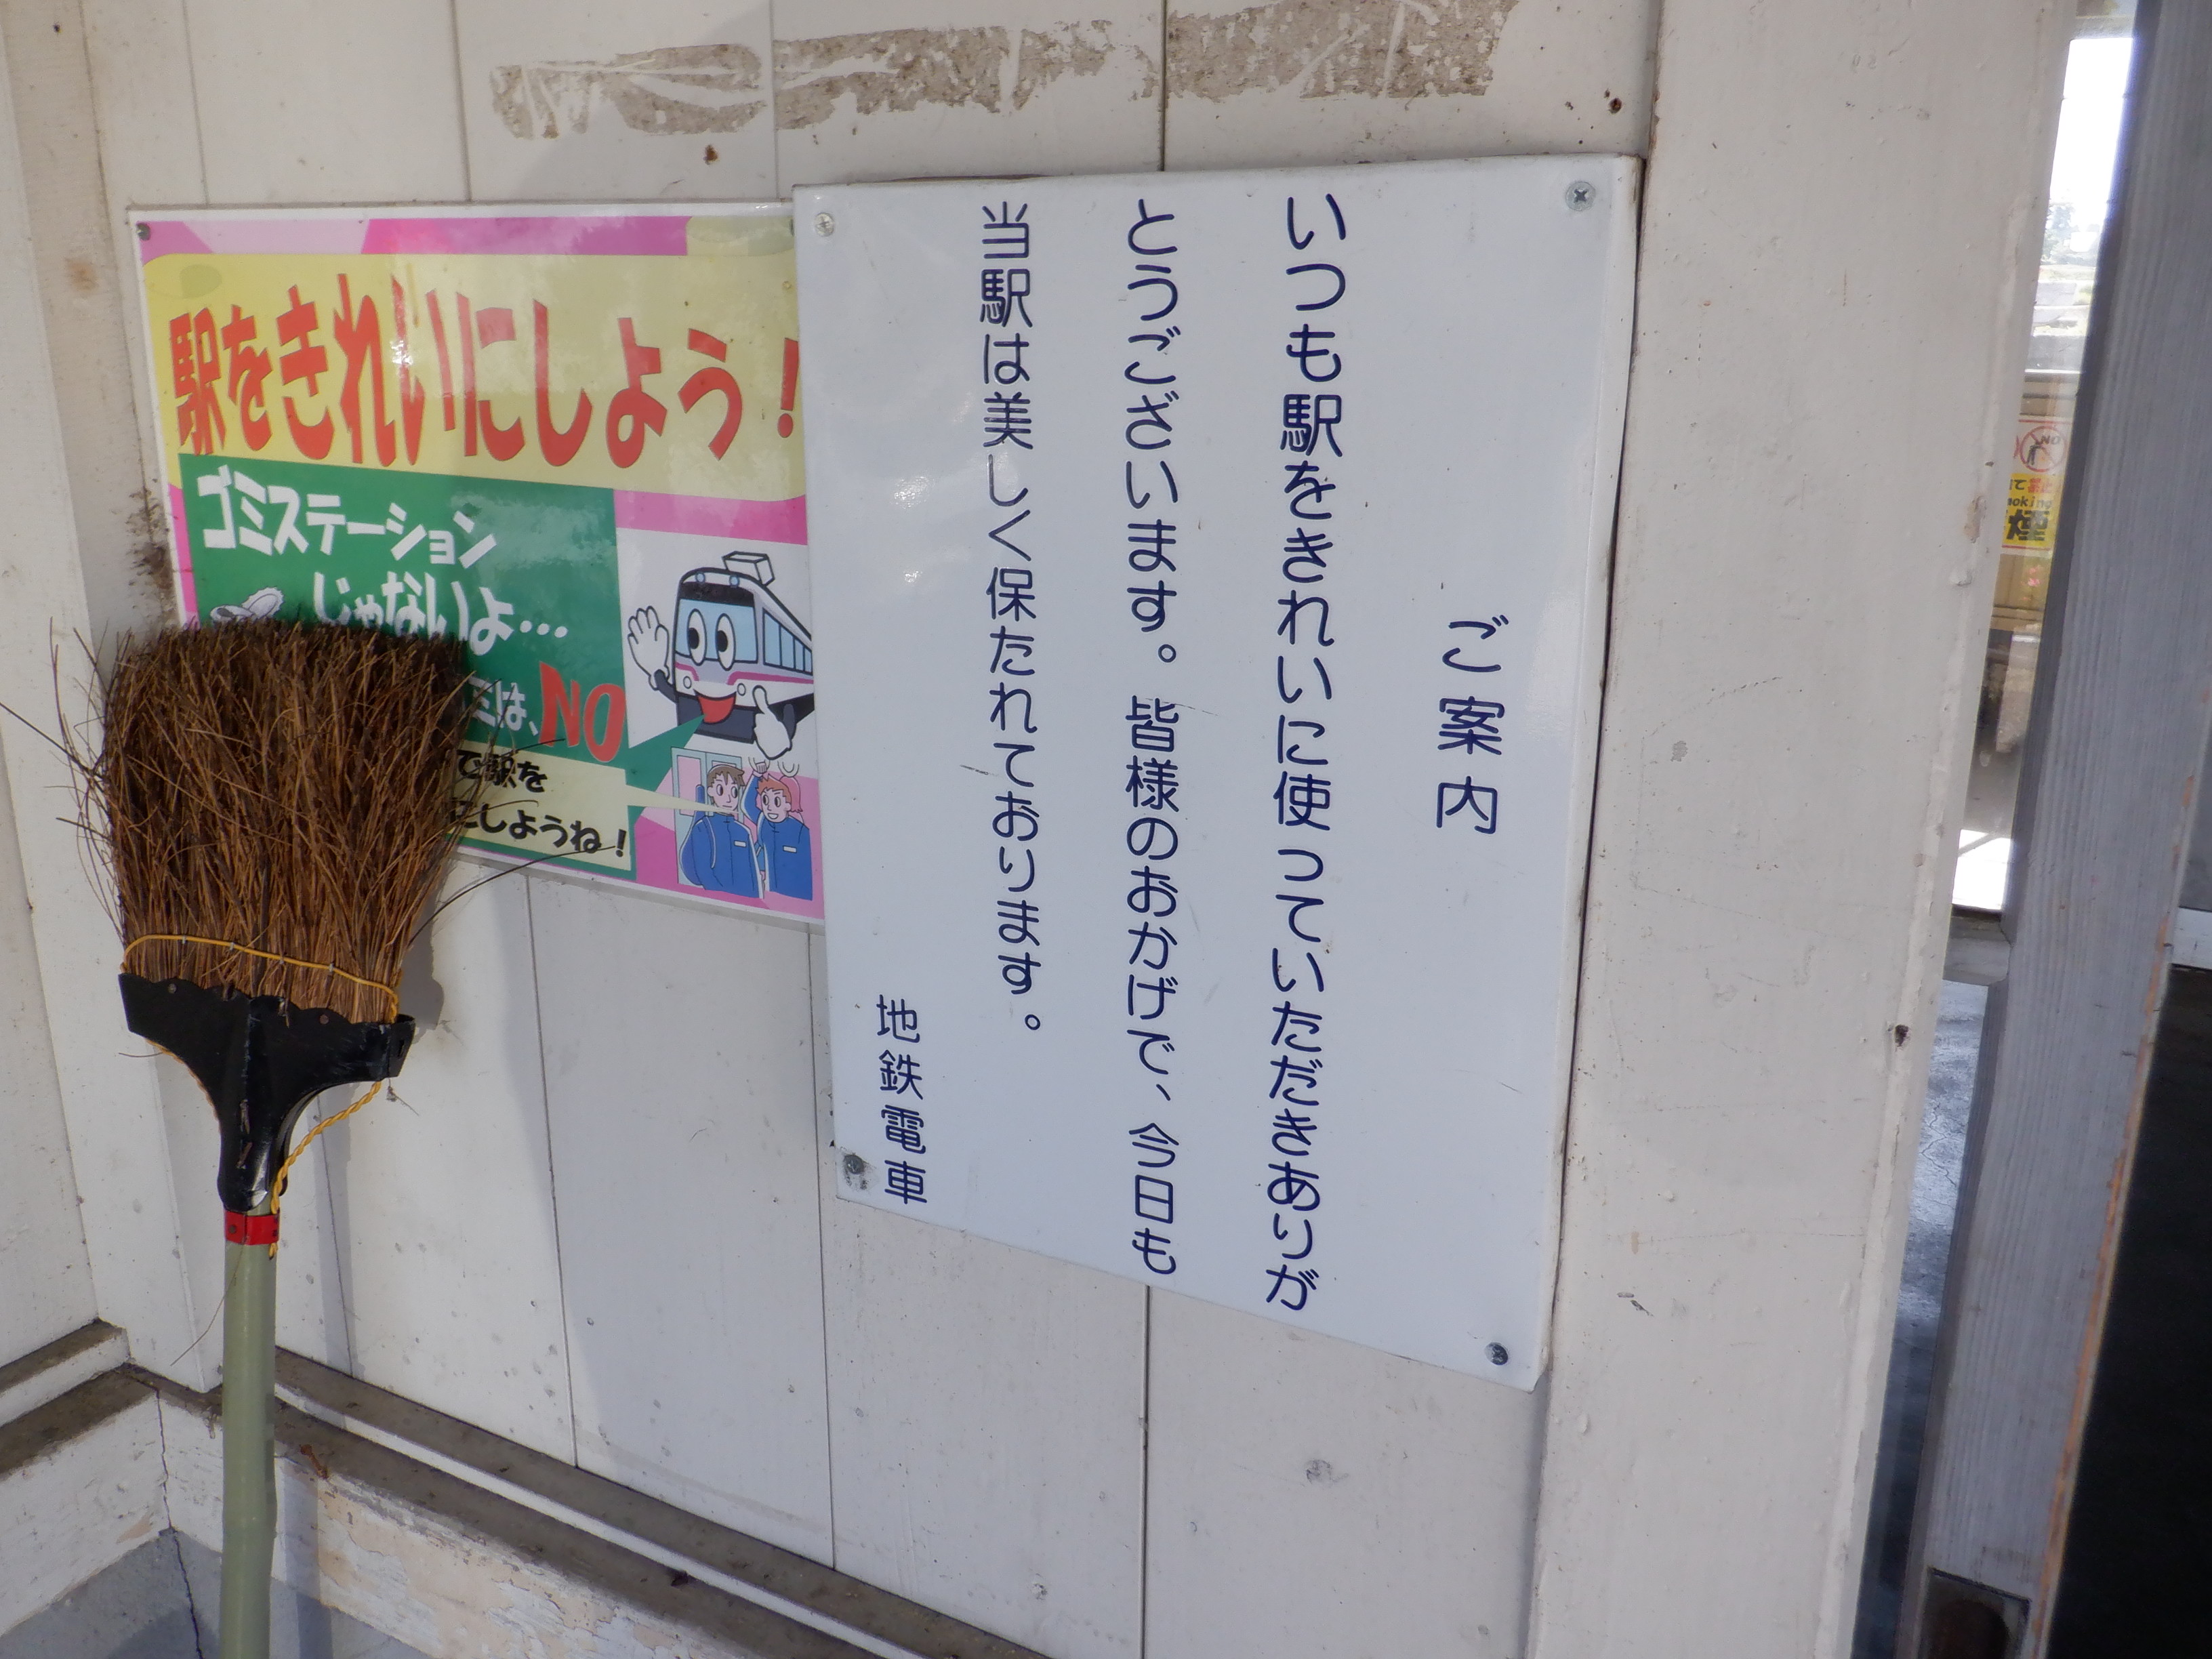 ご案内
いつも駅をきれいに使っていただきありが
とうございます。皆様のおかげで、今日も
当駅は美しく保たれております。
地鉄電車
駅をきれいにしよう！
ゴミステーション
じゃないよ…
ミは、NO
で駅を
にしようね！
NO
煙